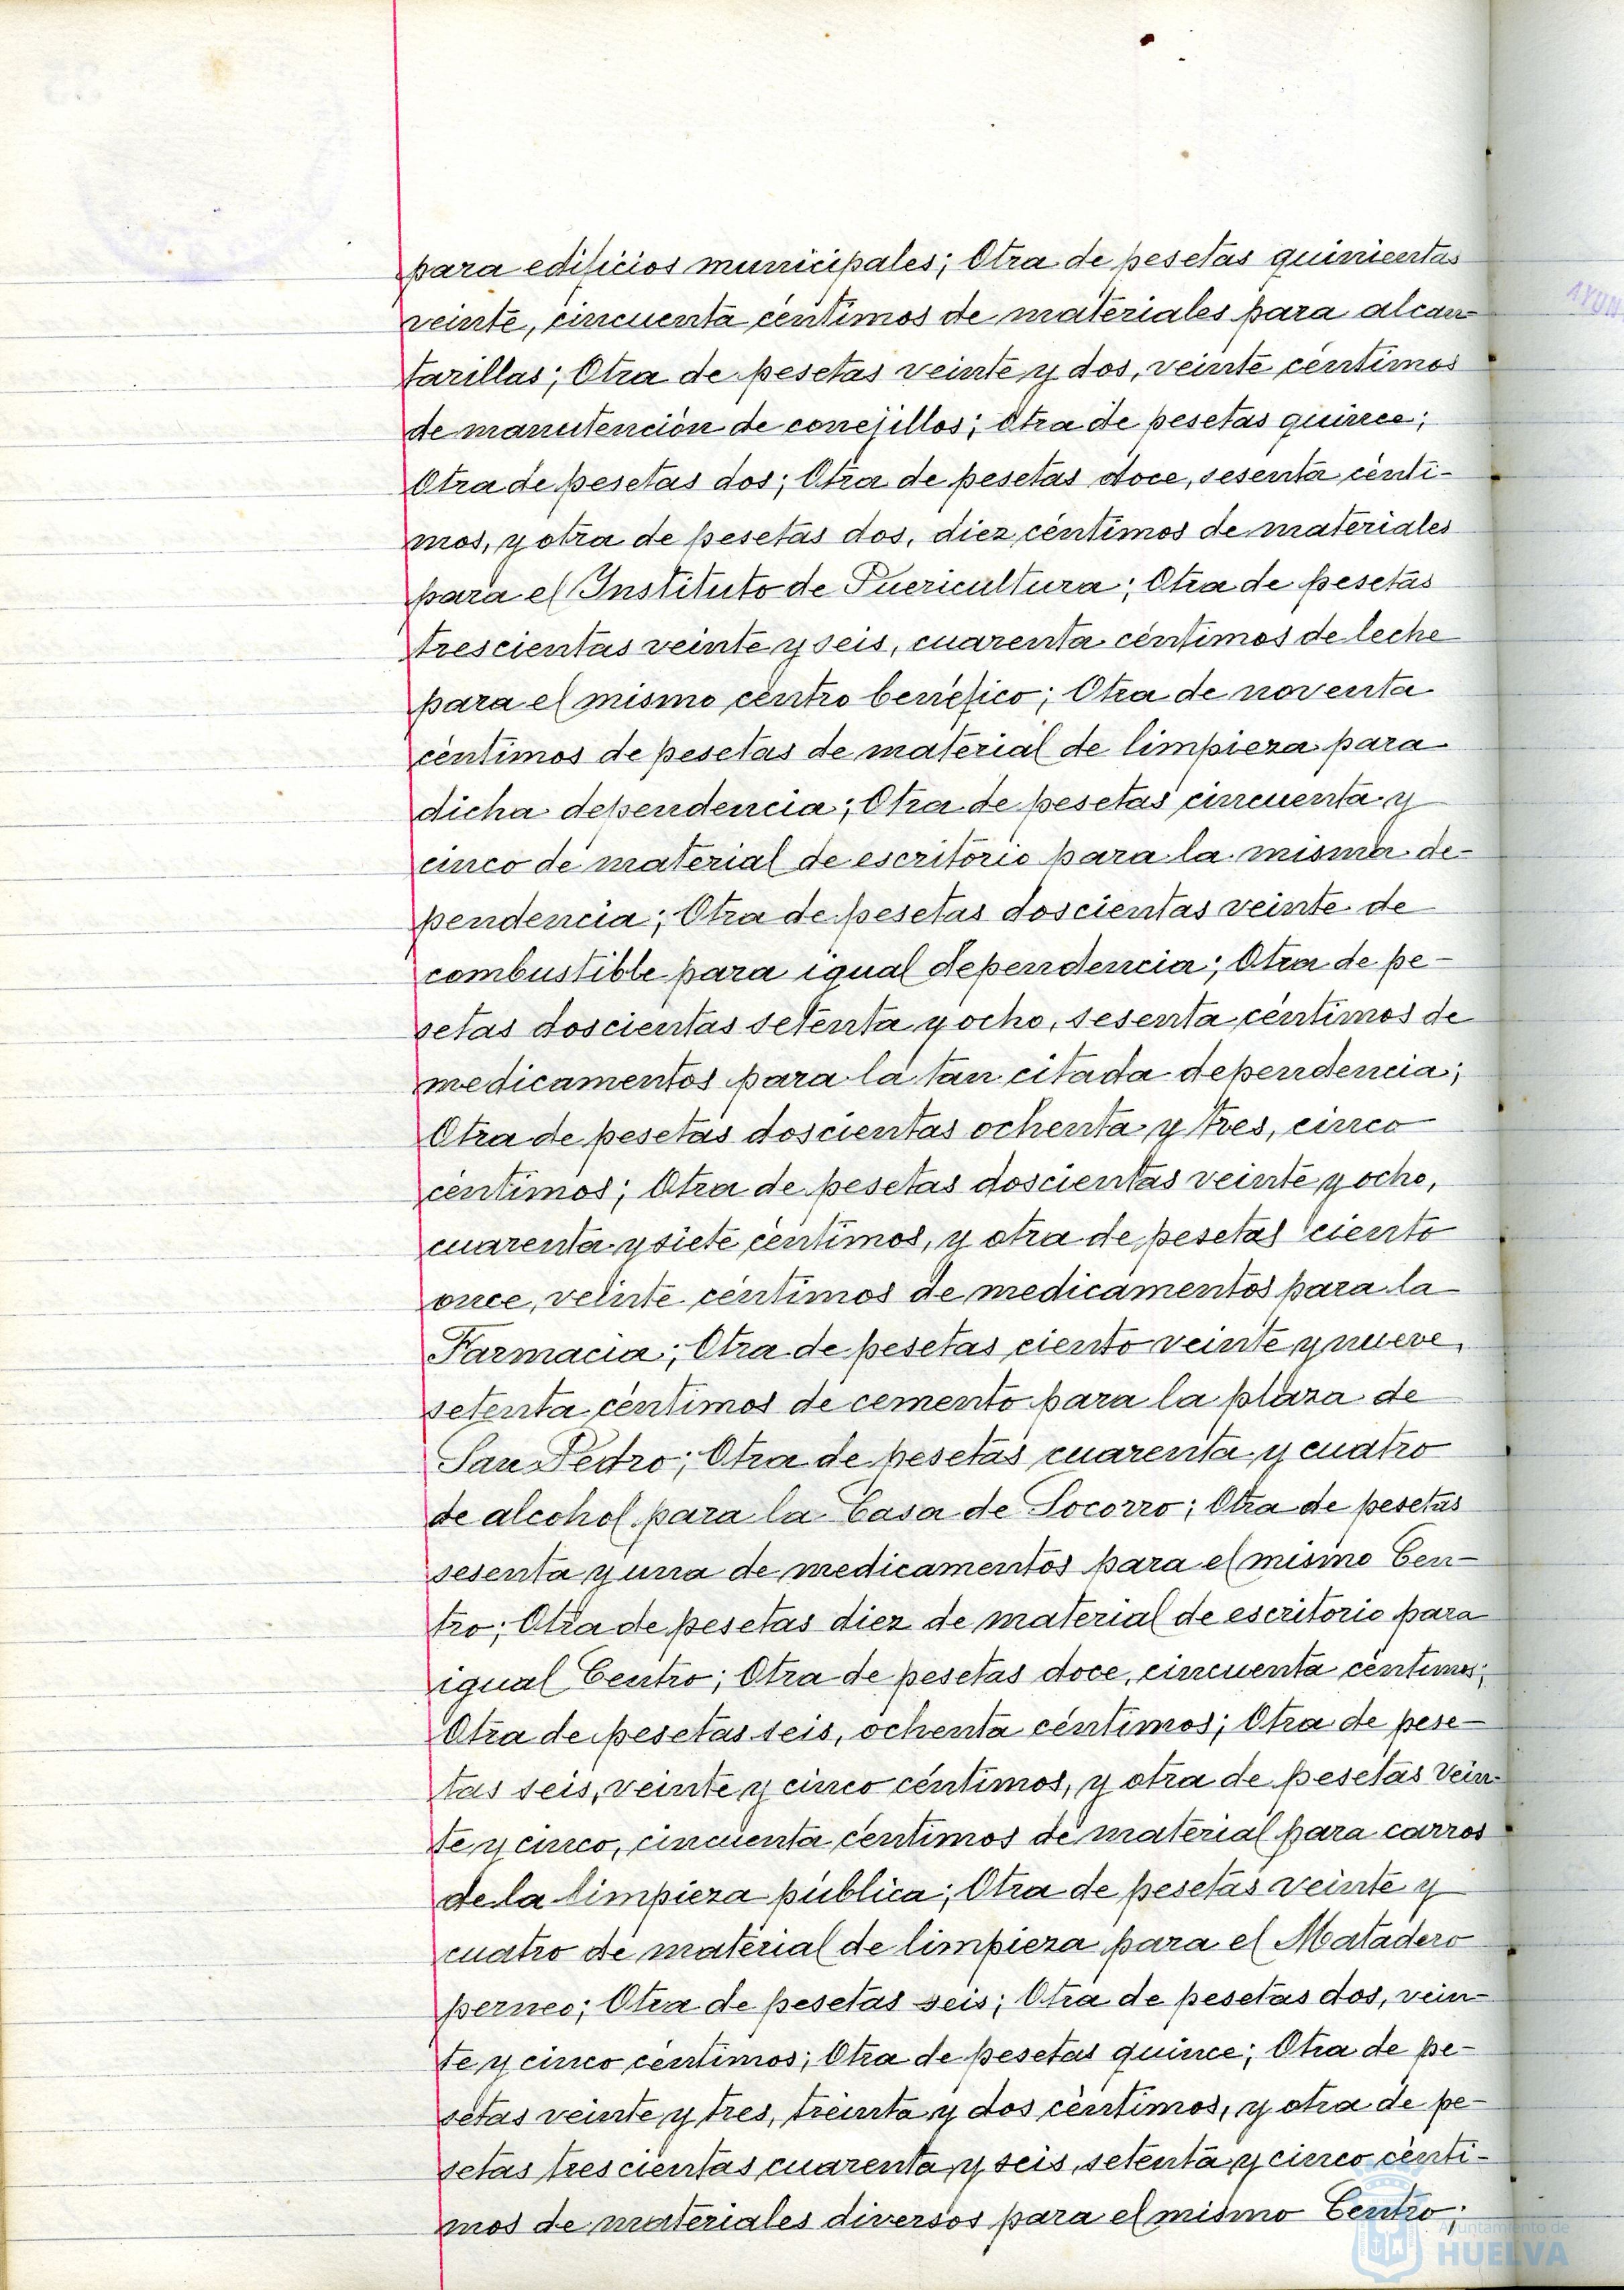 para edificios municipales; Otra de pesetas quinientas
veinte, cincuenta céntimos de materiales para alcan-
tarillas; Otra de pesetas veinte y dos, veinte céntimos
de manutención de conejillos; Otra de pesetas quince;
Otra de pesetas dos; Otra de pesetas doce, sesenta cénti-
mos, y otra de pesetas dos, diez céntimos de materiales
para el Instituto de Puericultura; Otra de pesetas
trescientas veinte y seis, cuarenta céntimos de leche
para el mismo centro benéfico; Otra de noventa
céntimos de pesetas de material de limpieza para
dicha dependencia; Otra de pesetas cincuenta y
cinco de material de escritorio para la misma de-
pendencia; Otra de pesetas doscientas veinte de
combustible para igual dependencia; Otra de pe-
setas doscientas setenta y ocho, sesenta céntimos de
medicamentos para la tan citada dependencia;
Otra de pesetas doscientas ochenta y tres, cinco
céntimos; Otra de pesetas doscientas veinte y ocho,
cuarenta y siete céntimos, y otra de pesetas ciento
once, veinte céntimos de medicamentos para la
Farmacia; Otra de pesetas ciento veinte y nueve,
setenta céntimos de cemento para la plaza de
San Pedro; Otra de pesetas cuarenta y cuatro
de alcohol para la Casa de Socorro; Otra de pesetas
sesenta y una de medicamentos para el mismo Cen-
tro; Otra de pesetas diez de material de escritorio para
igual Centro; Otra de pesetas doce, cincuenta céntimos;
Otra de pesetas seis, ochenta céntimos; Otra de pese-
tas seis, veinte y cinco céntimos, y otra de pesetas vein-
te y cinco, cincuenta céntimos de material para carros
de la limpieza pública; Otra de pesetas veinte y
cuatro de material de limpieza para el Matadero
perneo; Otra de pesetas seis; Otra de pesetas dos, vein-
te y cinco céntimos; Otra de pesetas quince; Otra de pe-
setas veinte y tres, treinta y dos céntimos, y otra de pe-
setas trescientas cuarenta y seis, setenta y cinco cénti-
mos de materiales diversos para el mismo Centro;
Ayuntamiento de
HUELVA